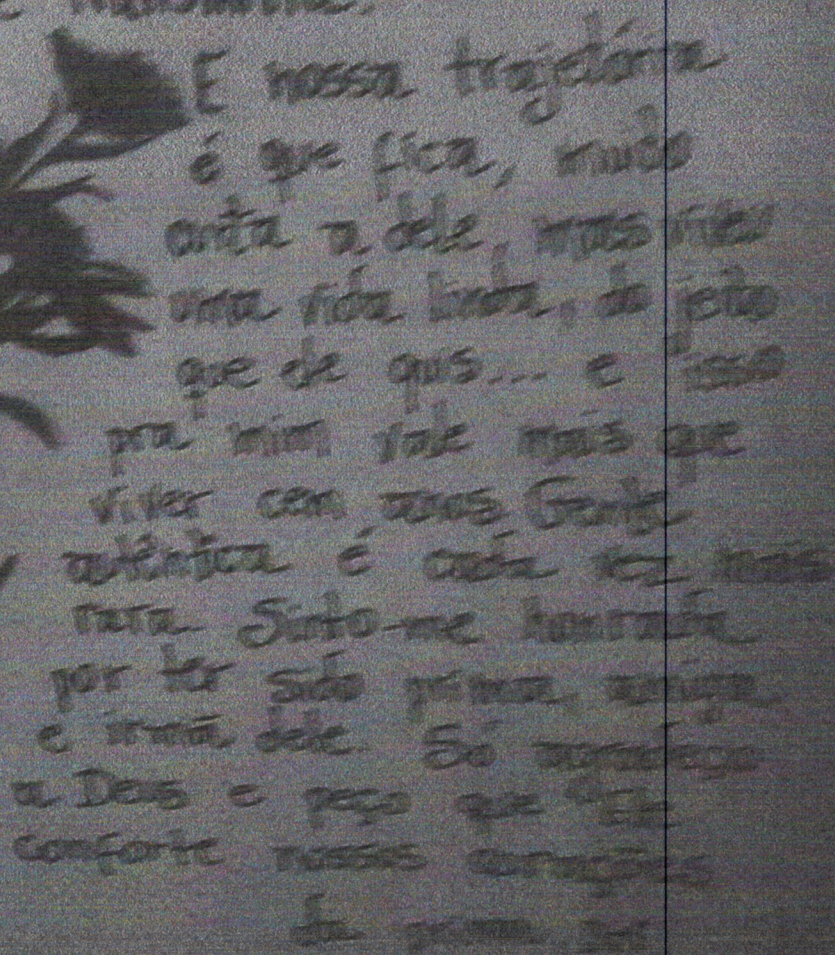 E nossa trajetória
é que fica, muito
curta a dele, mas viveu
uma vida linda, do jeito
que ele quis... e isso
pra mim vale mais que
viver cem anos. Gente
autêntica é cada vez mais
rara. Sinto-me honrada
por ter sido prima, amiga
e irmã dele. Só agradeço
a Deus e peço que Ele
conforte nossos corações